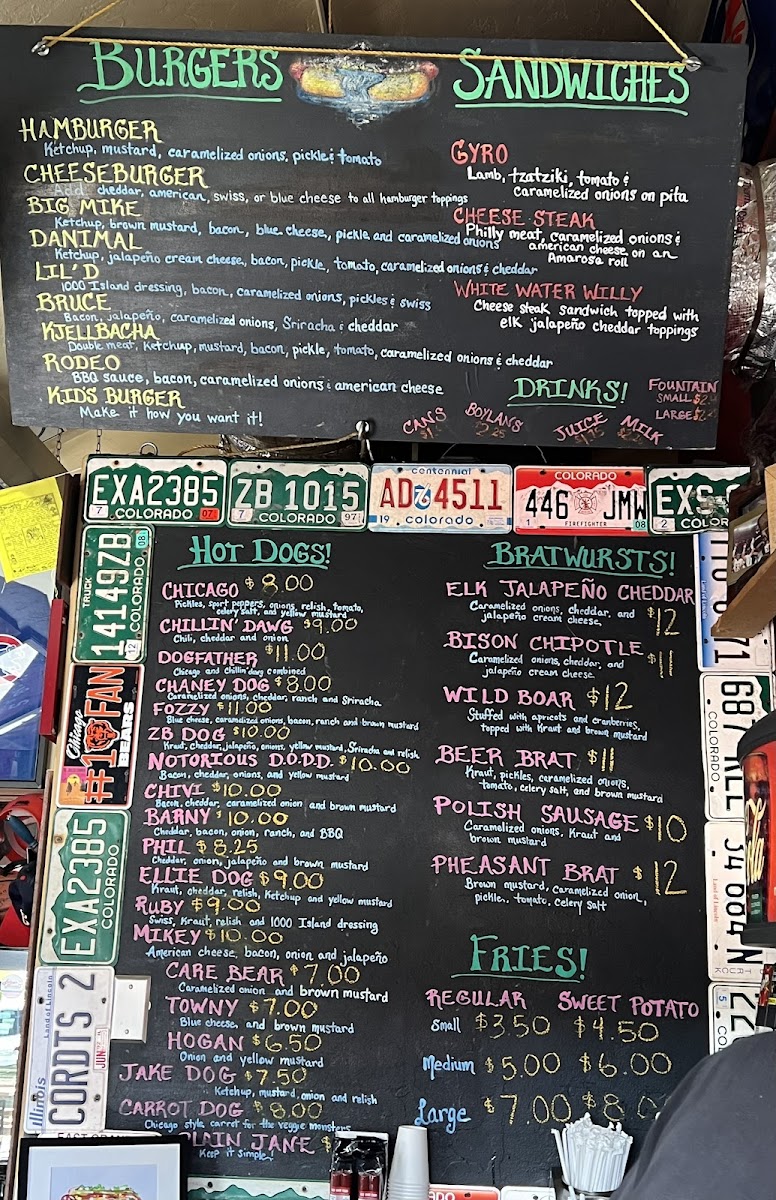 BURGERS
HAMBURGER
Ketchup, mustard, caramelized onions, pickle & tomato
CHEESEBURGER
Add cheddar, american, swiss, or blue cheese to all hamburger toppings
BIG MIKE
Ketchup, brown mustard, bacon, blue cheese, pickle and caramelized onions
DANIMAL
Ketchup, jalapeño cream cheese, bacon, pickle, tomato, caramelized onions & cheddar
LIL'D
1000 Island dressing, bacon, caramelized onions, pickles & swiss
BRUCE
Bacon, jalapeño, caramelized onions, Sriracha & cheddar
KJELLBACHA
Double meat, Ketchup, mustard, bacon, pickle, tomato, caramelized onions & cheddar
RODEO
BBQ sauce, bacon, caramelized onions & american cheese
KID'S BURGER
Make it how you want it!
SANDWICHES
GYRO
Lamb, tzatziki, tomato &
caramelized onions on pita
CHEESE STEAK
Philly meat, caramelized onions &
american cheese on an
Amarosa roll
WHITE WATER WILLY
Cheese steak sandwich topped with
elk jalapeño cheddar toppings
DRINKS!
CANS
BOYLANS
JUICE
MILK
FOUNTAIN
SMALL
LARGE
EXA2385
7 COLORADO 07
ZB 1015
COLORADO 97
centennial
AD 4511
19 colorado
COLORADO
446 JMW
1 FIREFIGHTER 08
EXS
2 COLOR
TRUCK 14149ZB COLORADO 08
12
Chicago BEARS #1 FAN
EXA2385
COLORADO
Land of Lincoln
CORDTS 2
Illinois JUN
HOT DOGS!
CHICAGO $8.00
Pickles, sport peppers, onions, relish, tomato,
celery salt, and yellow mustard
CHILLIN' DAWG $9.00
Chili, cheddar and onion
DOGFATHER $11.00
Chicago and Chillin' dawg combined
CHANEY DOG $8.00
Caramelized onions, cheddar, ranch and Sriracha
FOZZY $11.00
Blue cheese, caramelized onions, bacon, ranch and brown mustard
ZB DOG $10.00
Kraut, cheddar, jalapeño, onions, yellow mustard, Sriracha and relish
NOTORIOUS D.O.D.D. $10.00
Bacon, cheddar, onions, and yellow mustard
CHIVI $10.00
Bacon, cheddar, caramelized onion and brown mustard
BARNY $10.00
Cheddar, bacon, onion, ranch, and BBQ
PHIL $8.25
Cheddar, onion, jalapeño and brown mustard
ELLIE DOG $9.00
Kraut, cheddar, relish, Ketchup and yellow mustard
RUBY $9.00
Swiss, Kraut, relish and 1000 Island dressing
MIKEY $10.00
American cheese, bacon, onion and jalapeño
CARE BEAR $7.00
Caramelized onion and brown mustard
TOWNY $7.00
Blue cheese, and brown mustard
HOGAN $6.50
Onion and yellow mustard
JAKE DOG $7.50
Ketchup, mustard, onion and relish
CARROT DOG $8.00
Chicago style carrot for the veggie monsters
JANE $
Keep it simple!
BRATWURSTS!
ELK JALAPEÑO CHEDDAR $12
Caramelized onions, cheddar, and
jalapeño cream cheese.
BISON CHIPOTLE $11
Caramelized onions, cheddar, and
jalapeño cream cheese
WILD BOAR $12
Stuffed with apricots and cranberries,
topped with Kraut and brown mustard
BEER BRAT $11
Kraut, pickles, caramelized onions,
tomato, celery salt, and brown mustard
POLISH SAUSAGE $10
Caramelized onions, Kraut and
brown mustard
PHEASANT BRAT $12
Brown mustard, caramelized onion,
pickle, tomato, celery salt
FRIES!
REGULAR SWEET POTATO
Small $3.50 $4.50
Medium $5.00 $6.00
Large $7.00 $8.0
COLORADO